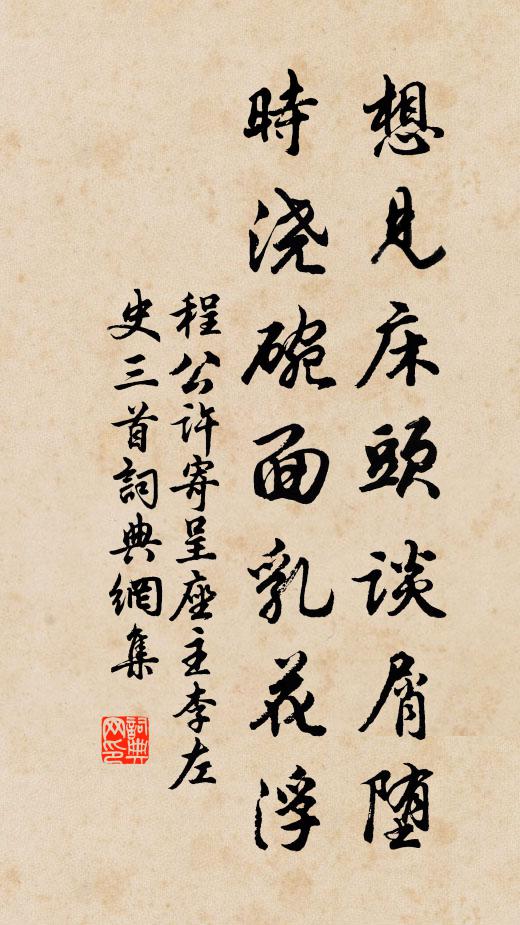 想見床頭談屑堕
時浇碗面乳花浮
程公许寄呈座主李左
史三首詞典網集
詞典网印